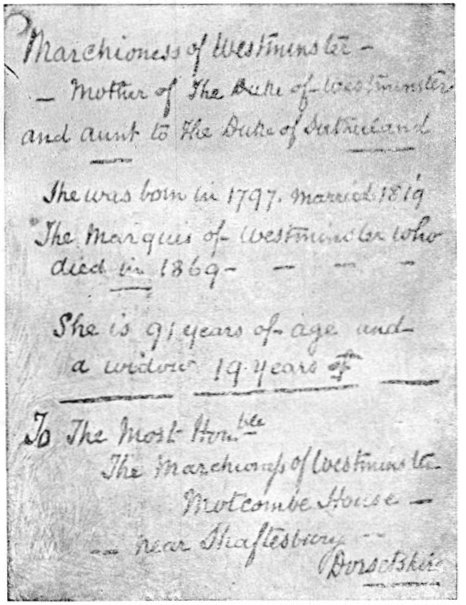 Marchioness of Westminster –
– Mother of The Duke of Westminster
and aunt to The Duke of Sutherland
She was born in 1797. married 1819
The Marquis of Westminster who
died in 1869 – – – –
She is 91 years of age and
a widow 19 years
To The Most Hon.ble
The Marchioness of Westminster
Motcombe House –
– near Shaftesbury –
Dorsetshire